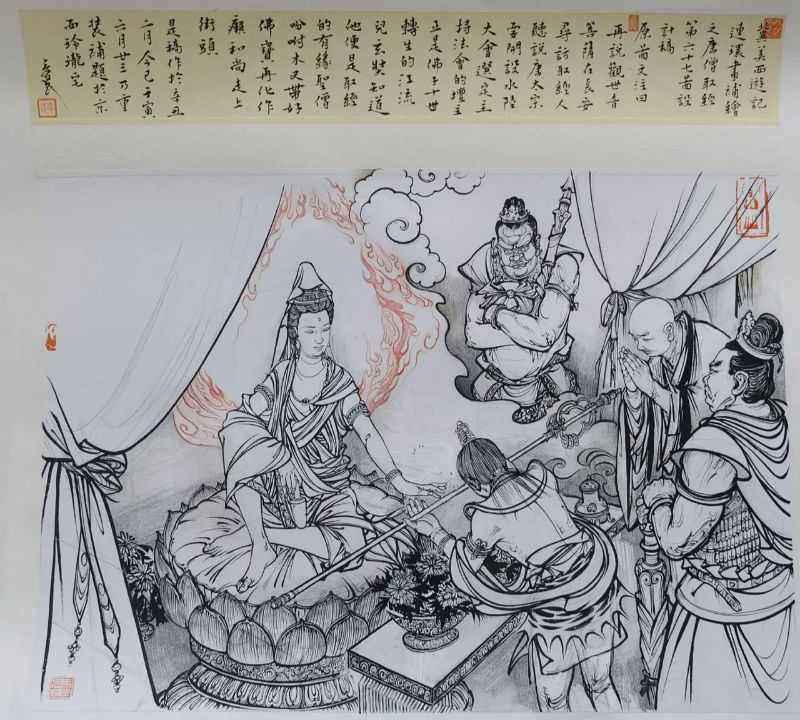 冀美西遊記
連環畫補繪
之唐僧取經
第六十七 設
計稿
原 文注曰
再說觀世音
菩薩在長安
尋訪取經人
聽說唐太宗
要開設水陸
大會選定主
持法會的壇主
正是佛子十世
轉生的江流
兒玄奘知道
他便是取經
的有緣聖僧
吩咐木叉帶好
佛寶再化作
癩和尚走上
街頭
是稿作於辛丑
二月今已壬寅
六月廿三乃重
裝補題於京
西玲瓏宅